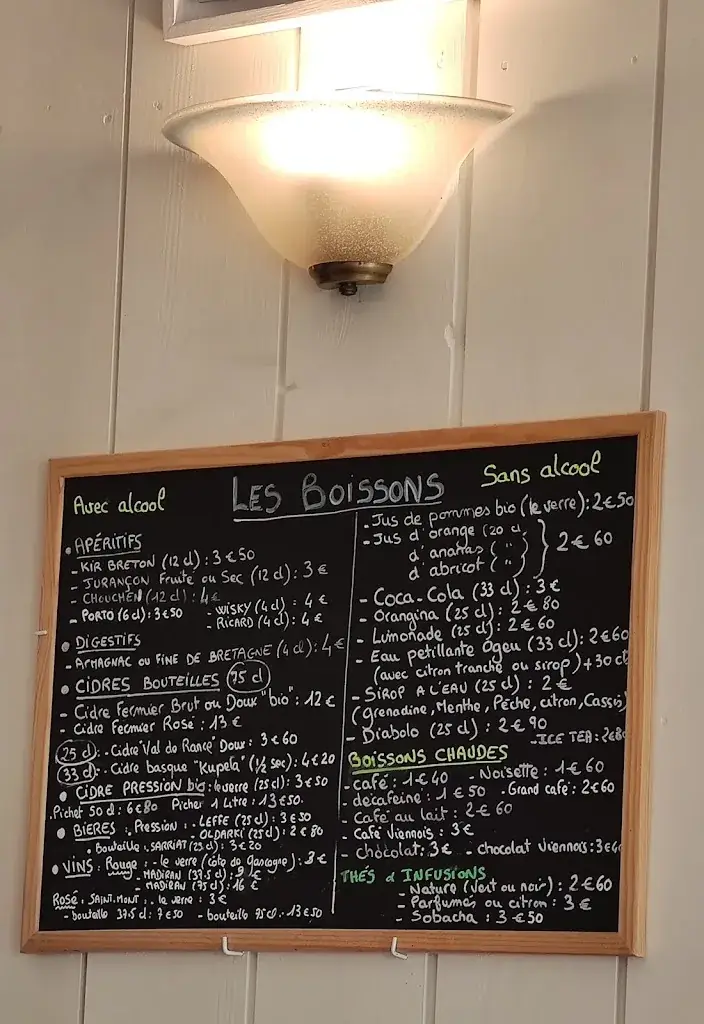 LES BOISSONS
Avec alcool
• APÉRITIFS
- KIR BRETON (12 cl) : 3 € 50
- JURANÇON Fruité ou Sec (12 cl) : 3 €
- CHOUCHEN (12 cl) : 4 €
- PORTO (6 cl) : 3 € 50
- WISKY (4 cl) : 4 €
- RICARD (4 cl) : 4 €
• DIGESTIFS
- ARMAGNAC OU FINE DE BRETAGNE (4 cl) : 4 €
• CIDRES BOUTEILLES 75 cl
- Cidre Fermier Brut ou Doux "bio" : 12 €
- Cidre Fermier Rosé : 13 €
25 cl : - Cidre "Val de Rance" Doux : 3 € 60
33 cl : - Cidre basque "Kupela" (1/2 sec) : 4 € 20
• CIDRE PRESSION bio : le verre (25 cl) : 3 € 50
. Pichet 50 cl : 6 € 80 Pichet 1 Litre : 13 € 50.
• BIÈRES : . Pression : - LEFFE (25 cl) : 3 € 50
- OLDARKI (25 cl) : 2 € 80
- bouteille : SARRIAT (25 cl) : 3 € 20
• VINS : Rouge : - le verre (côte de Gascogne) : 3 €
- MADIRAN (37.5 cl) : 9 €
- MADIRAN (75 cl) : 16 €
Rosé : SAINT. MONT : . le verre : 3 €
- bouteille 37.5 cl : 7 € 50 - bouteille 75 cl : 13 € 50
Sans alcool
- Jus de pommes bio (le verre) : 2 € 50
- Jus d'orange (20 cl)
d'ananas ( " )
d'abricot ( " )
2 € 60
- Coca-Cola (33 cl) : 3 €
- Orangina (25 cl) : 2 € 80
- Limonade (25 cl) : 2 € 60
- Eau petillante Ogeu (33 cl) : 2 € 60
(avec citron tranche ou sirop) + 30 ct
- SIROP A L'EAU (25 cl) : 2 €
(Grenadine, Menthe, Pêche, citron, Cassis)
- Diabolo (25 cl) : 2 € 90
- ICE TEA : 2 € 80
BOISSONS CHAUDES
- café : 1 € 40 - Noisette : 1 € 60
- décaféiné : 1 € 50 - Grand café : 2 € 60
- Café au lait : 2 € 60
- Café Viennois : 3 €
- chocolat : 3 € - chocolat viennois : 3 €
THÉS & INFUSIONS
- Nature (Vert ou noir) : 2 € 60
- Parfumés ou citron : 3 €
- Sobacha : 3 € 50